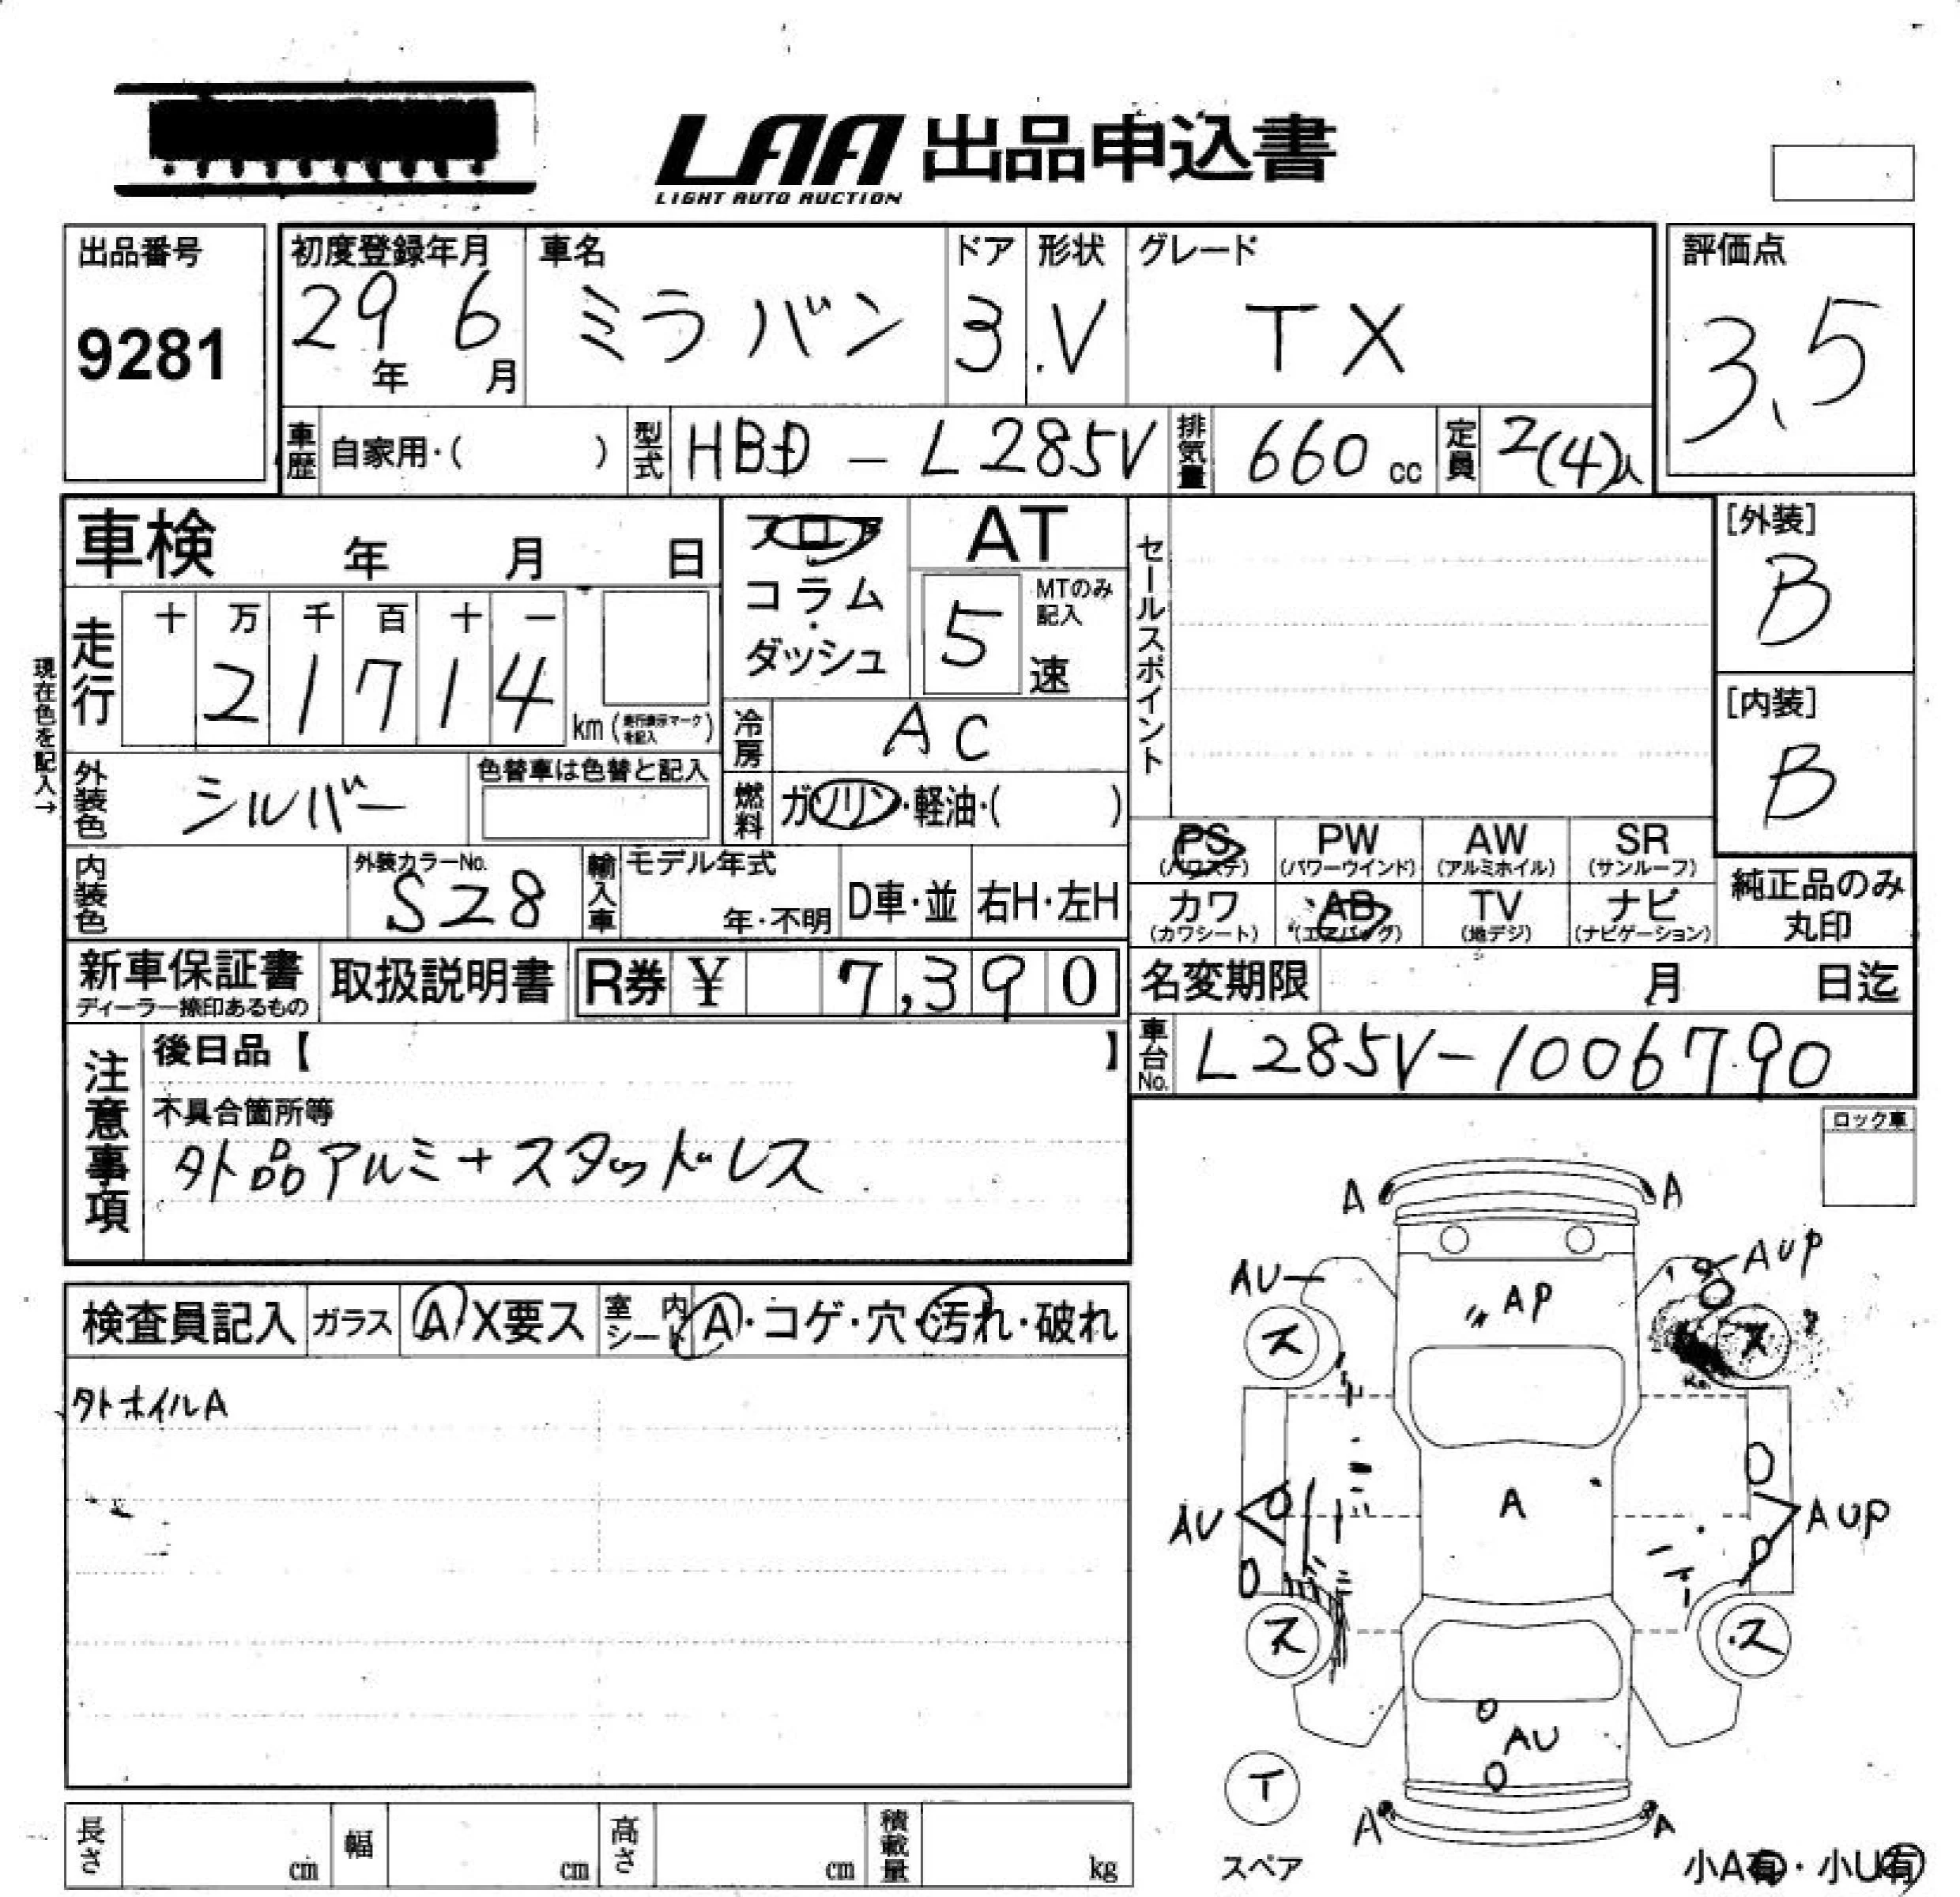 LAA 出品申込書
LIGHT AUTO AUCTION
出品番号
9281
初度登録年月
29年 6月
車名
ミラバン
ドア
3
形状
.V
グレード
TX
評価点
3.5
車歴
自家用・( )
型式
HBD - L285V
排気量
660 cc
定員
2(4)人
車検 年 月 日
フロア
コラム
・
ダッシュ
AT
MTのみ
記入
5 速
セールスポイント
[外装]
B
現在色を記入→
走行
十 万 千 百 十 一
2 1 7 1 4
km (走行表示マークを記入)
冷房
AC
[内装]
B
外装色
シルバー
色替車は色替と記入
燃料
ガソリン・軽油・( )
PS
(パワステ)
PW
(パワーウインド)
AW
(アルミホイル)
SR
(サンルーフ)
内装色
外装カラーNo.
S28
輸入車
モデル年式
年・不明
D車・並
右H・左H
カワ
(カワシート)
AB
(エアバッグ)
TV
(地デジ)
ナビ
(ナビゲーション)
純正品のみ
丸印
新車保証書
ディーラー捺印あるもの
取扱説明書
R券 ¥ 7,390
名変期限 月 日迄
車台No.
L285V-1006790
注意事項
後日品【 】
不具合箇所等
外品アルミ+スタッドレス
ロック車
検査員記入
ガラス
A X要ス
室内
シート
A・コゲ・穴・汚れ・破れ
外ホイルA
A A
AU AUP
AP
ス ス
A
AU AUP
ス ス
AU
T
スペア
A A
小A有・小U有
長さ cm
幅 cm
高さ cm
積載量 kg